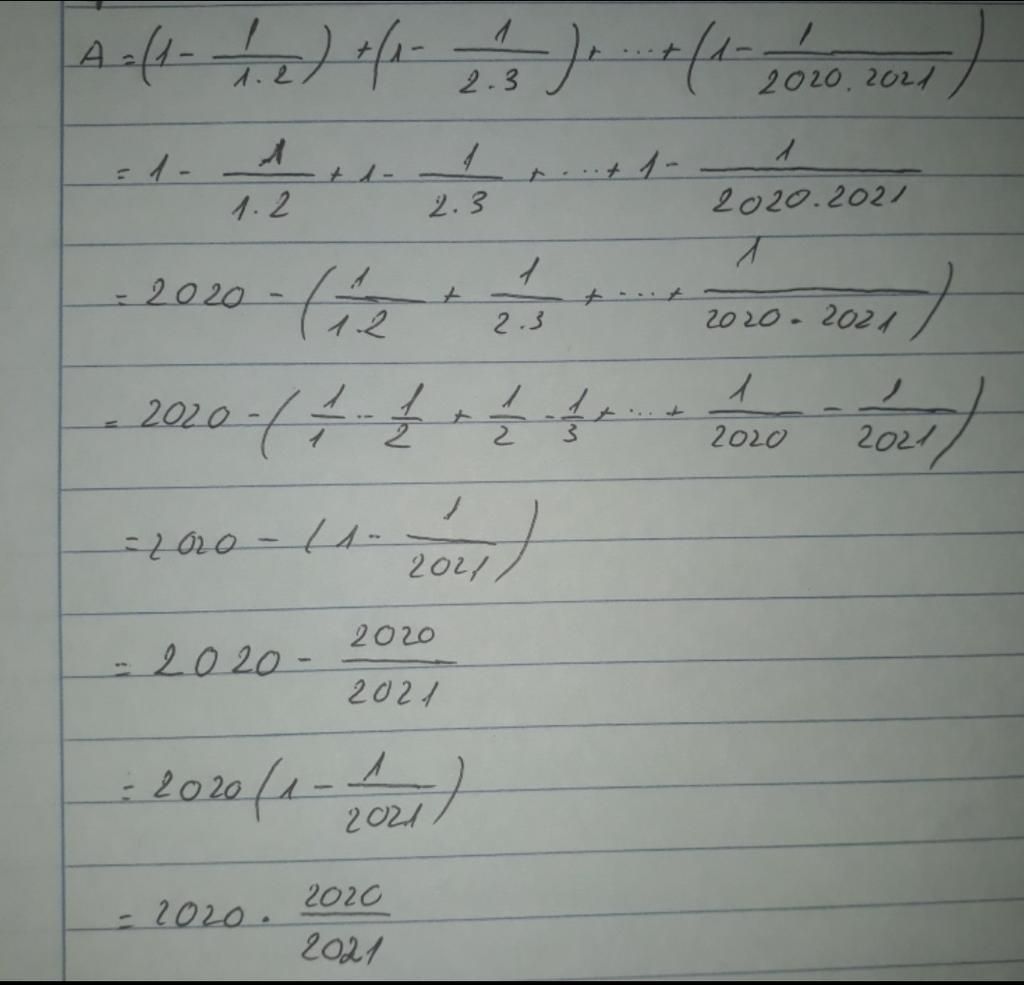 A = (1 - 1/1.2) + (1 - 1/2.3) + ... + (1 - 1/2020.2021)
= 1 - 1/1.2 + 1 - 1/2.3 + ... + 1 - 1/2020.2021
= 2020 - (1/1.2 + 1/2.3 + ... + 1/2020.2021)
= 2020 - (1/1 - 1/2 + 1/2 - 1/3 + ... + 1/2020 - 1/2021)
= 2020 - (1 - 1/2021)
= 2020 - 2020/2021
= 2020 (1 - 1/2021)
= 2020 . 2020/2021